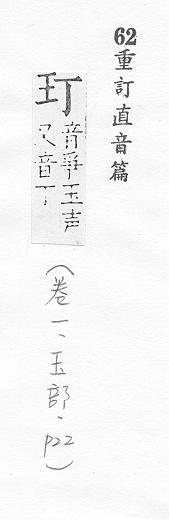 62重訂直音篇
玎音爭玉声
又音丁
(卷一、玉部、p22)